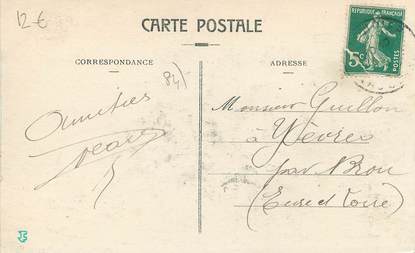 12 €
CARTE POSTALE
RÉPUBLIQUE FRANÇAISE
5c
POSTES
CORRESPONDANCE
ADRESSE
84)
Amitiés
Monsieur Guillon
à Yèvres
par Brou
(Eure et Loire)